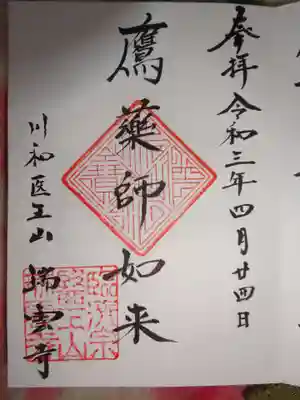 奉拝 令和三年四月廿四日
鷹薬師如来
川和医王山 瑞雲寺